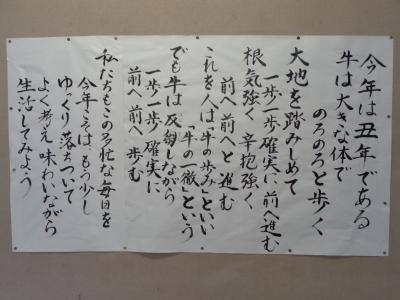 今年は丑年である
牛は大きな体で
のろのろと歩く
大地を踏みしめて
一歩一歩確実に前へ進む
根気強く 辛抱強く
前へ前へと進む
これを人は「牛の歩み」といい
「牛の徹」という
でも牛は反芻しながら
一歩一歩確実に
前へ前へ歩む
私たちもこの多忙な毎日を
今年こそは、もう少し
ゆっくり落ちついて
よく考え味わいながら
生活してみよう